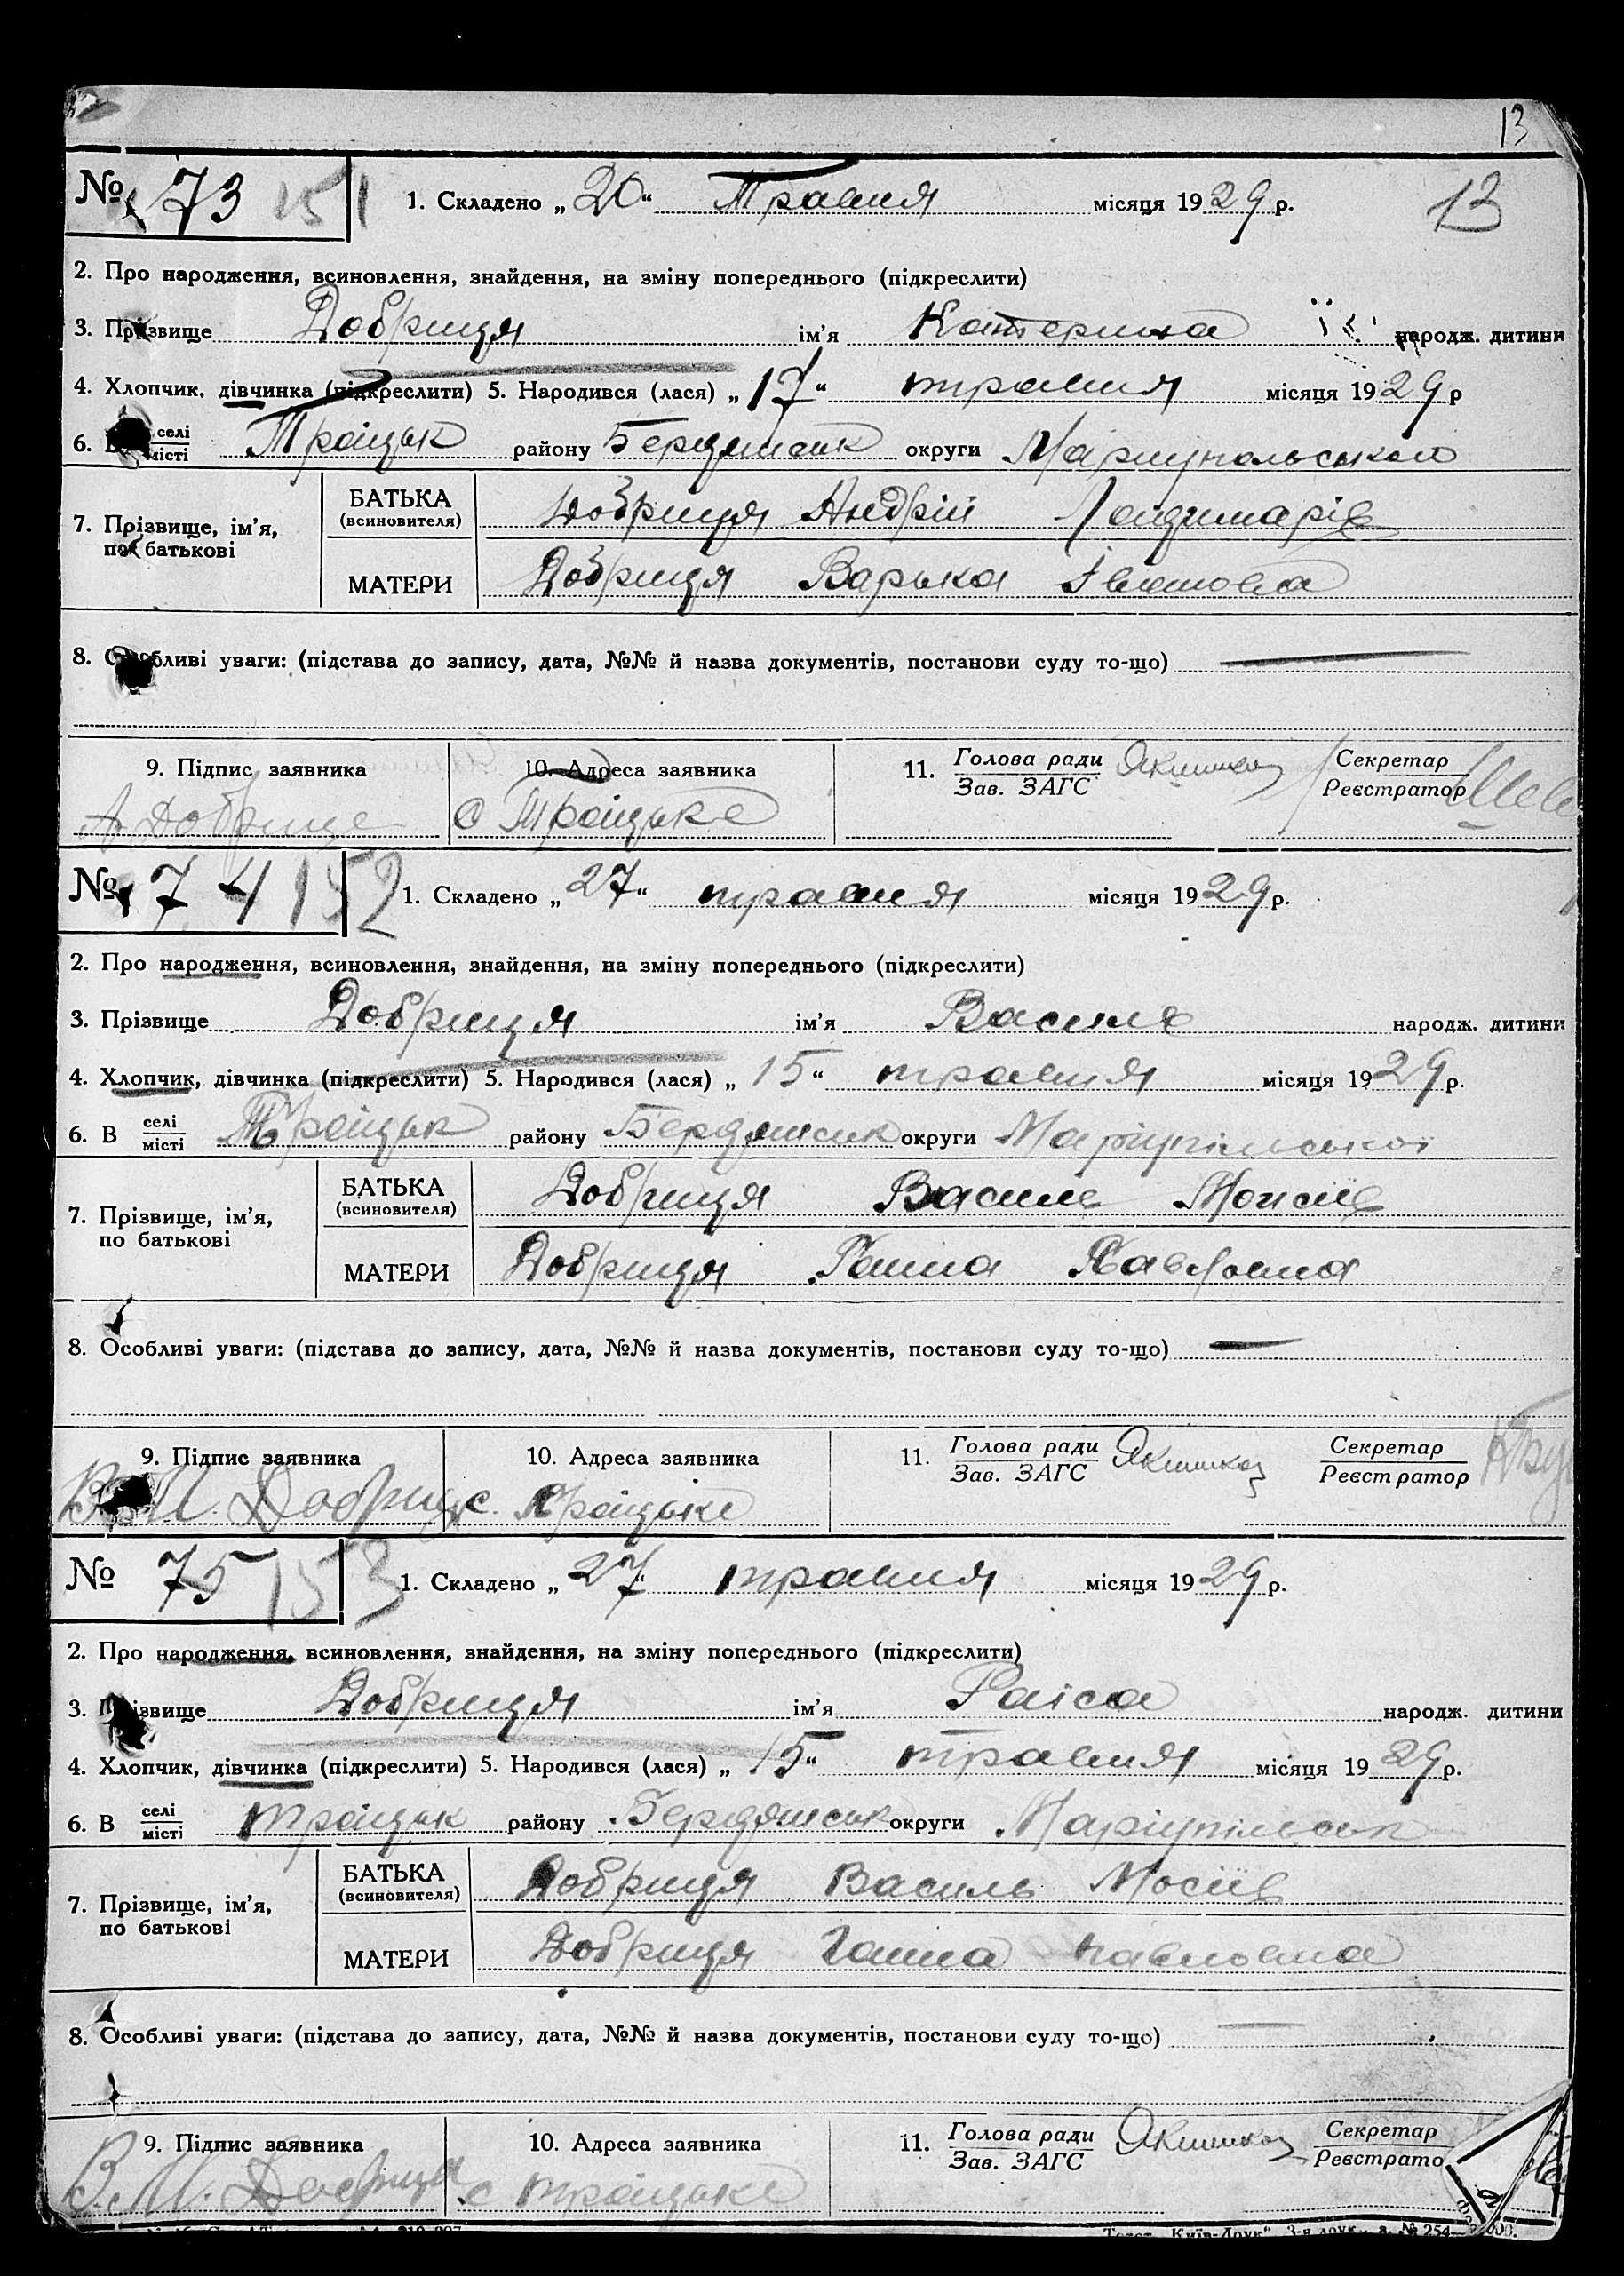 13
№ 73 151 1. Складено „20“ Травня місяця 1929 р. 13
2. Про народження, всиновлення, знайдення, на зміну попереднього (підкреслити)
3. Прізвище Добриця ім’я Катерина народж. дитини
4. Хлопчик, дівчинка (підкреслити) 5. Народився (лася) „17“ травня місяця 1929 р
6. В селі місті Троіцьк району Бердянськ округи Маріупольського
7. Прізвище, ім’я, по батькові
БАТЬКА (всиновителя) Добриця Андрій
МАТЕРИ Добриця Варька Івановна
8. Особливі уваги: (підстава до запису, дата, №№ й назва документів, постанови суду то-що) —
9. Підпис заявника 10. Адреса заявника 11. Голова ради Зав. ЗАГС Секретар Реєстратор
А Добрице с Троіцьке
№ 74 152 1. Складено „27“ травня місяця 1929 р.
2. Про народження, всиновлення, знайдення, на зміну попереднього (підкреслити)
3. Прізвище Добриця ім’я Василь народж. дитини
4. Хлопчик, дівчинка (підкреслити) 5. Народився (лася) „15“ травня місяця 1929 р.
6. В селі місті Троіцьк району Бердянськ округи Маріупільськоі
7. Прізвище, ім’я, по батькові
БАТЬКА (всиновителя) Добриця Василь Мойсіїв
МАТЕРИ Добриця Ганна Павловна
8. Особливі уваги: (підстава до запису, дата, №№ й назва документів, постанови суду то-що) —
9. Підпис заявника 10. Адреса заявника 11. Голова ради Зав. ЗАГС Секретар Реєстратор
В. М. Добриця с. Троіцьке
№ 75 153 1. Складено „27“ травня місяця 1929 р.
2. Про народження, всиновлення, знайдення, на зміну попереднього (підкреслити)
3. Прізвище Добриця ім’я Раіса народж. дитини
4. Хлопчик, дівчинка (підкреслити) 5. Народився (лася) „15“ травня місяця 1929 р.
6. В селі місті Троіцьк району Бердянськ округи Маріупільськ
7. Прізвище, ім’я, по батькові
БАТЬКА (всиновителя) Добриця Василь Мосіїв
МАТЕРИ Добриця Ганна Павловна
8. Особливі уваги: (підстава до запису, дата, №№ й назва документів, постанови суду то-що)
9. Підпис заявника 10. Адреса заявника 11. Голова ради Зав. ЗАГС Секретар Реєстрато
В. М. Добриця с Троіцьке
„Київ-Друк“, 3-я друк., з. № 254